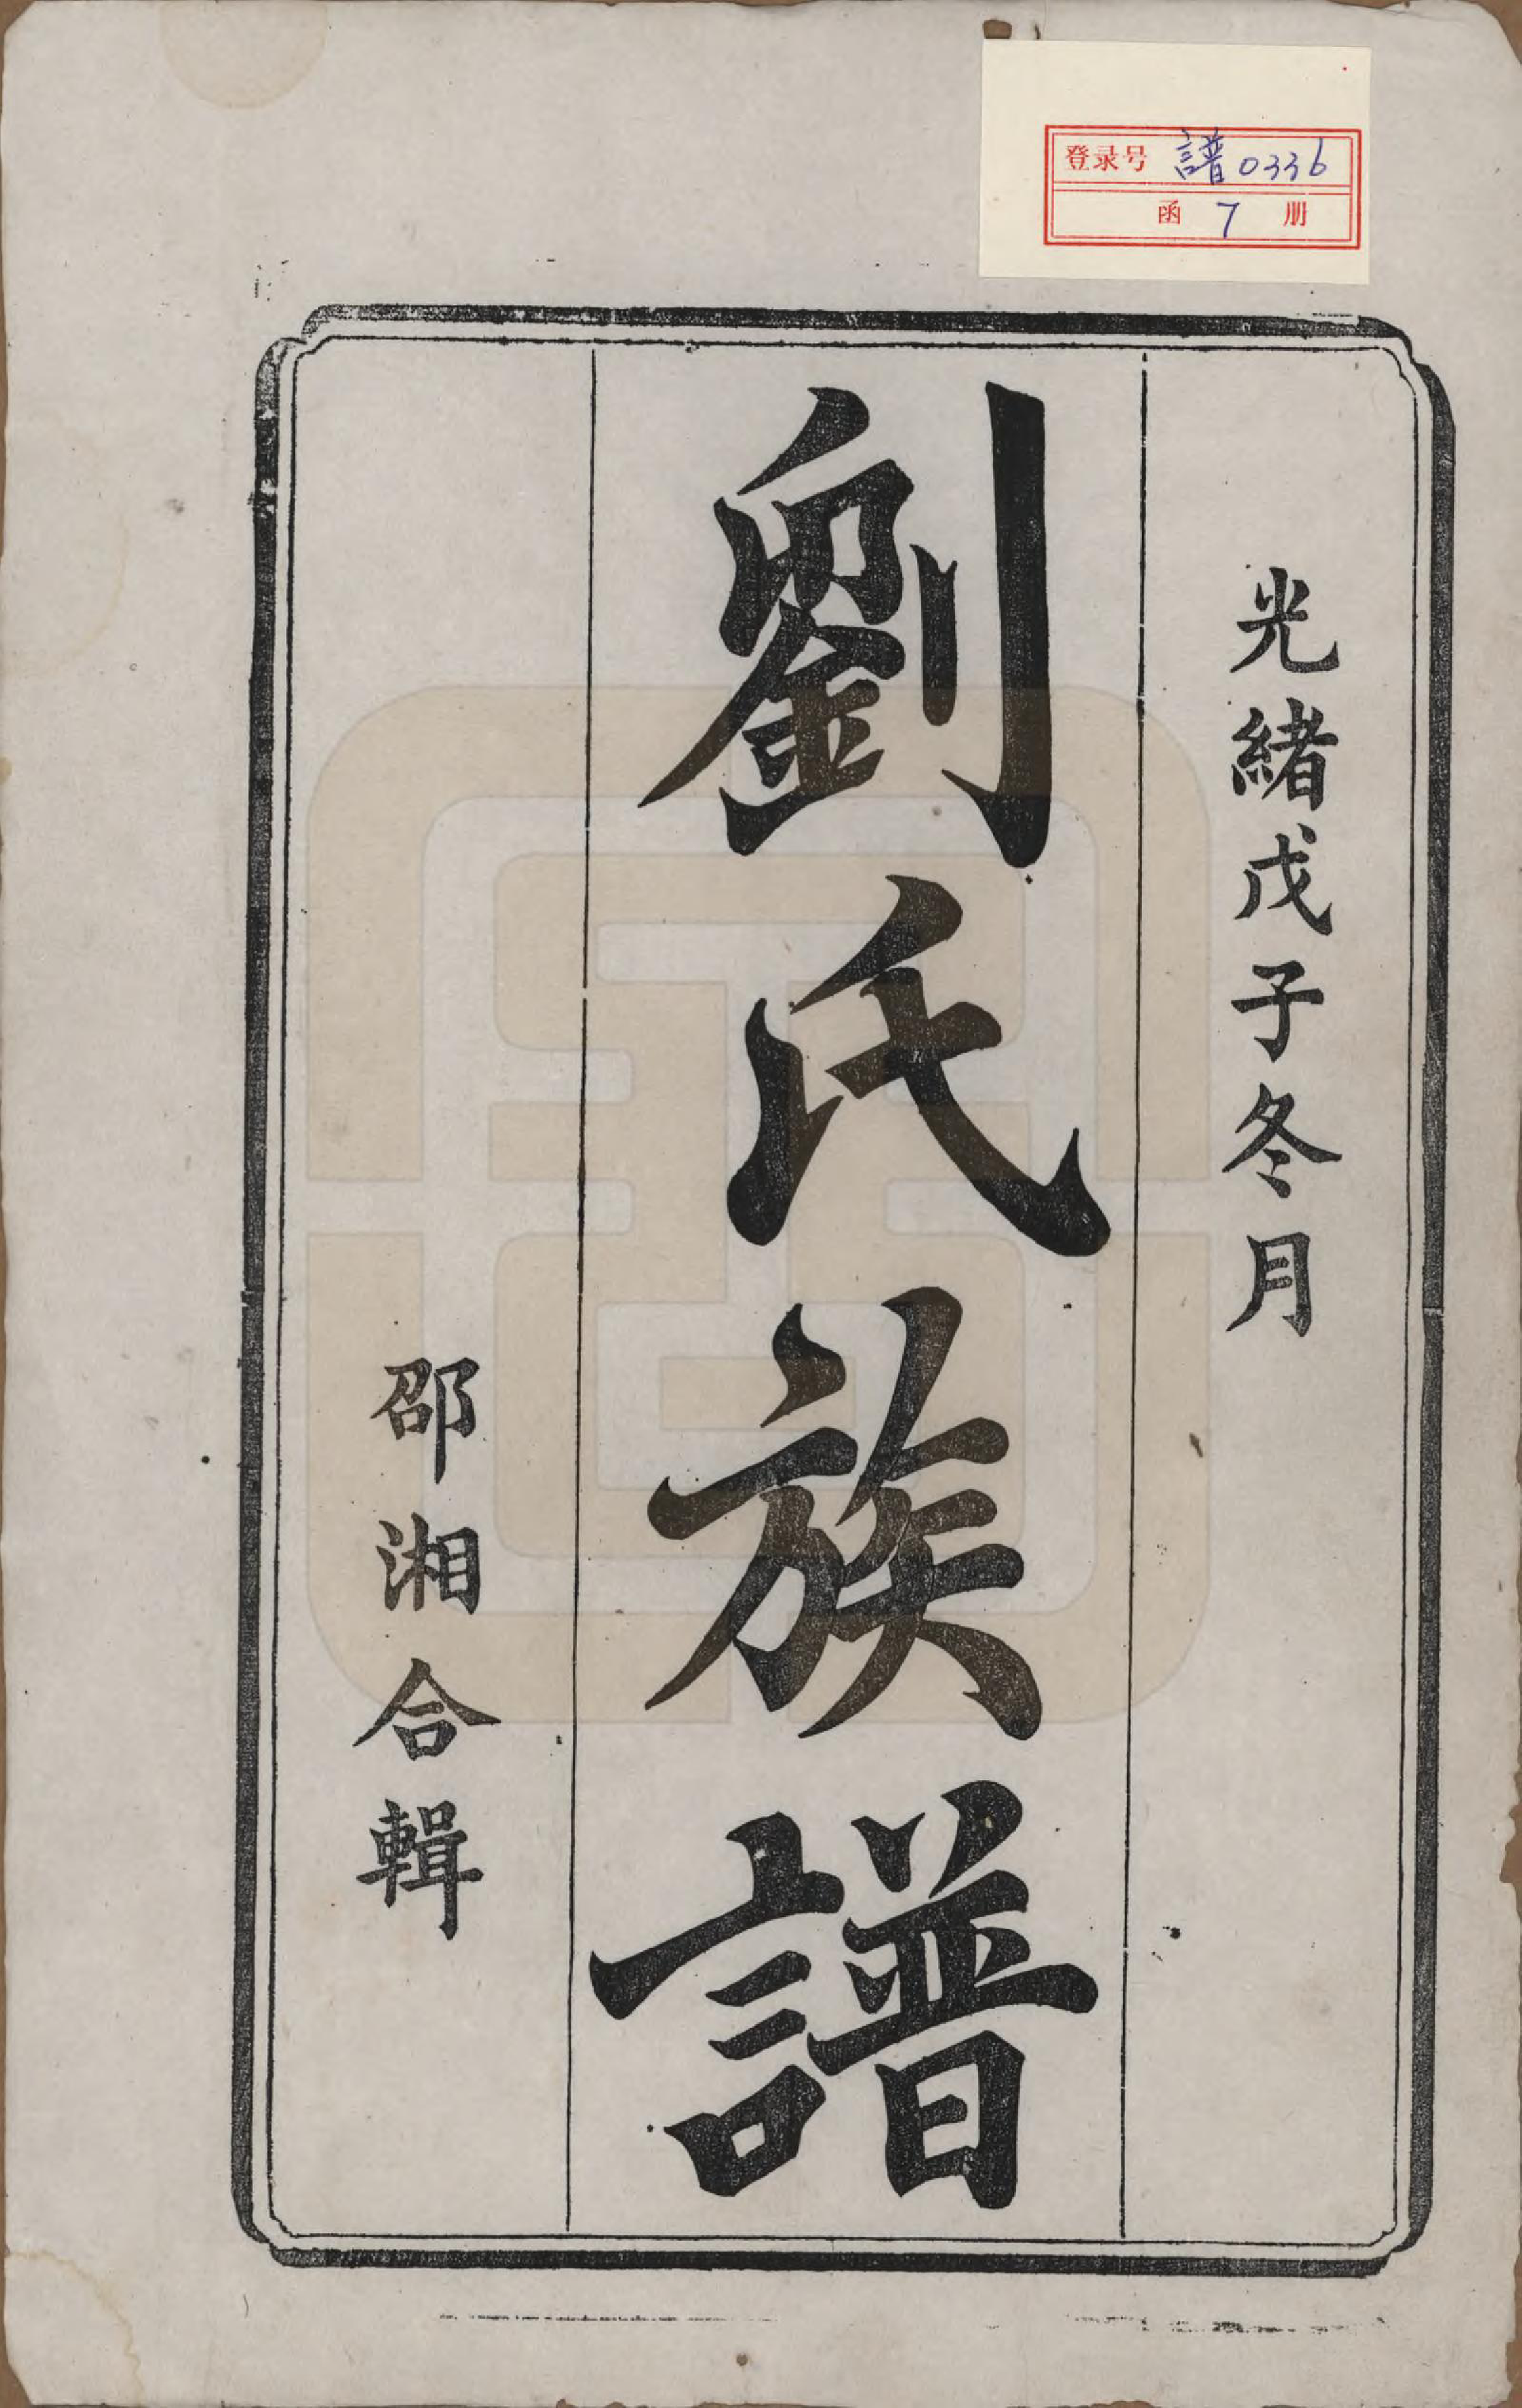 登录号 譜0336
函 7 册
光緒戊子冬月
劉氏族譜
邵湘合輯